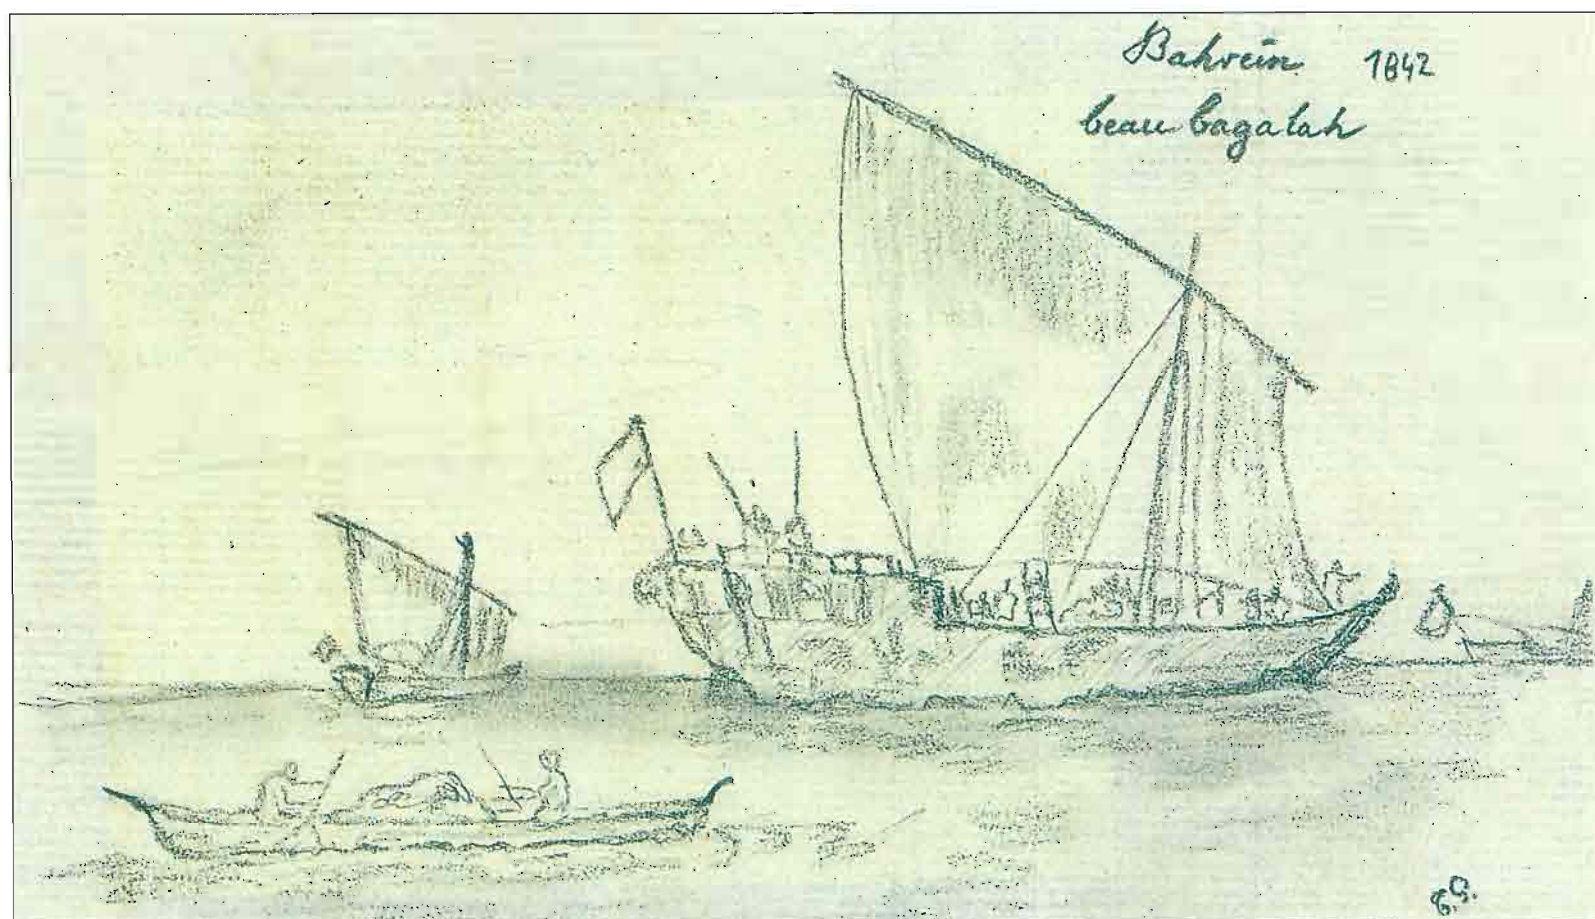 Bahrein 1842
beau bagalah